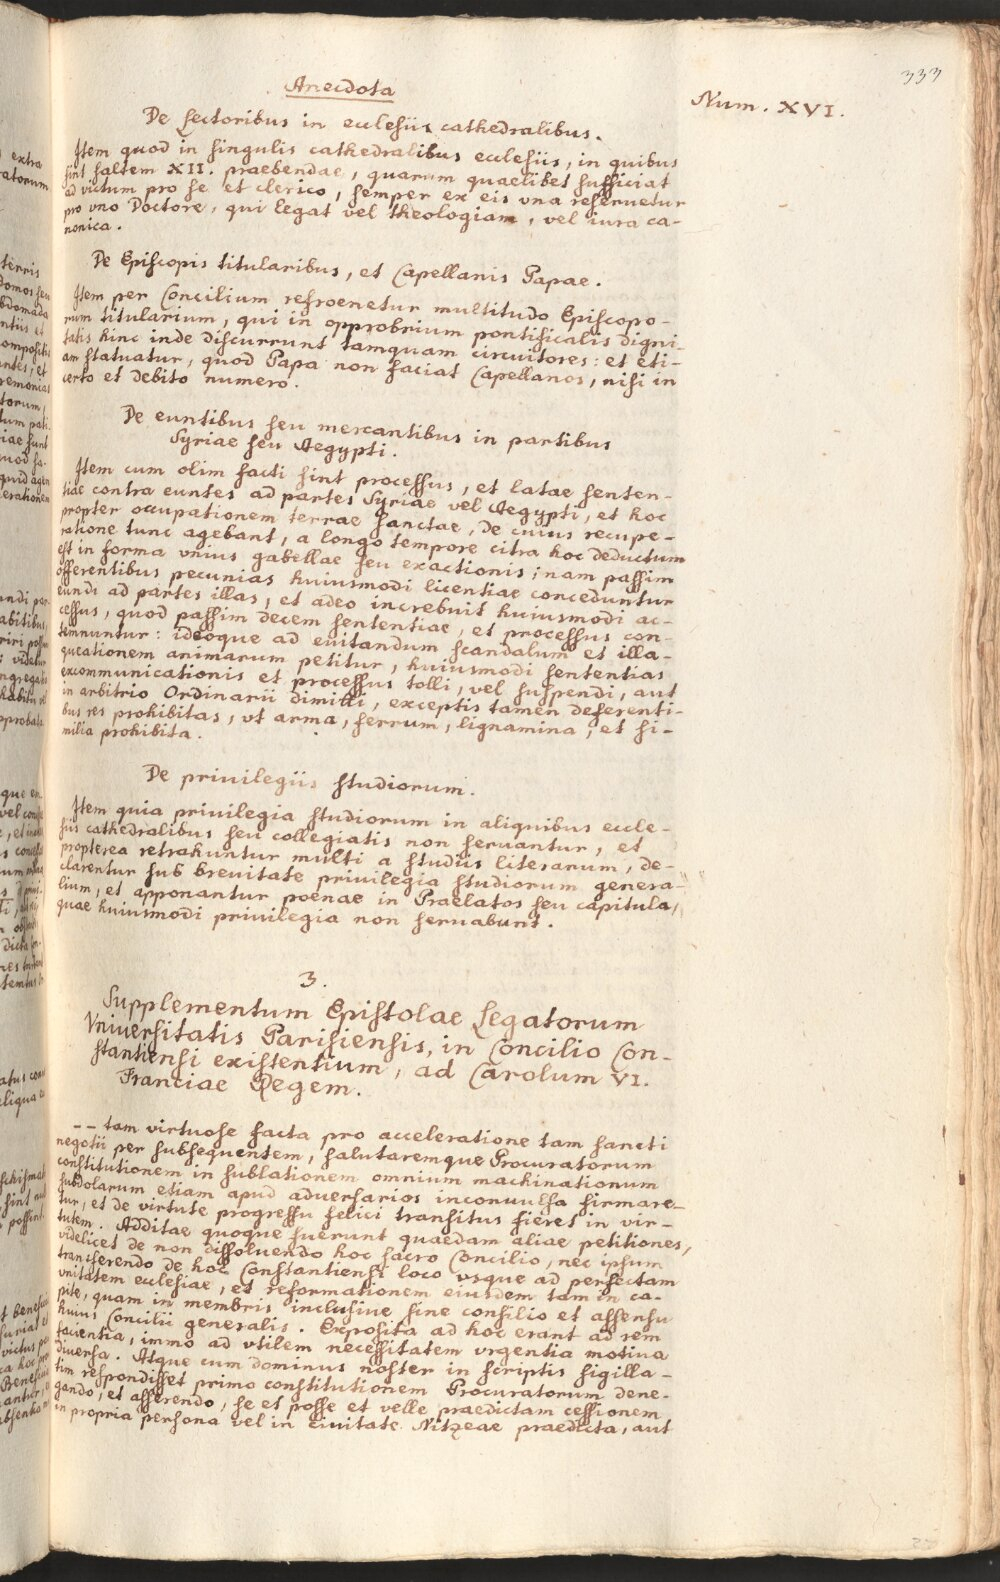 333
Anecdota
Num. XVI.
De Lectoribus in ecclesiis cathedralibus.
Item quod in singulis cathedralibus ecclesiis, in quibus
sint saltem XII. praebendae, quarum quaelibet sufficiat
ad victum pro se et clerico, semper ex eis vna reseruetur
pro vno Doctore, qui legat vel theologiam, vel iura ca-
nonica.
De Episcopis titularibus, et Capellanis Papae.
Item per Concilium refroenetur multitudo Episcopo-
rum titularium, qui in opprobrium pontificalis digni-
tatis hinc inde discurrunt tamquam circuitores: et eti-
am statuatur, quod Papa non faciat Capellanos, nisi in
certo et debito numero.
De euntibus seu mercantibus in partibus
Syriae seu Aegypti.
Item cum olim facti sint processus, et latae senten-
tiae contra euntes ad partes Syriae vel Aegypti, et hoc
propter occupationem terrae sanctae, de cuius recupe-
ratione tunc agebant, a longo tempore citra hoc deductum
est in forma vnius gabellae seu exactionis; nam passim
offerentibus pecunias huiusmodi licentiae conceduntur
eundi ad partes illas, et adeo increbuit huiusmodi ac-
cessus, quod passim decem sententiae, et processus con-
temnuntur: ideoque ad euitandum scandalum et illa-
queationem animarum petitur, huiusmodi sententias
excommunicationis et processus tolli, vel suspendi, aut
in arbitrio Ordinarii dimitti, exceptis tamen deferenti-
bus res prohibitas, vt arma, ferrum, lignamina, et si-
milia prohibita.
De privilegiis studiorum.
Item quia privilegia studiorum in aliquibus eccle-
siis cathedralibus seu collegiatis non seruantur, et
propterea retrahuntur multi a studiis literarum, de-
clarentur sub breuitate privilegia studiorum genera-
lium, et apponantur poenae in Praelatos seu capitula,
quae huiusmodi privilegia non seruabunt.
3.
Supplementum Epistolae Legatorum
Vniuersitatis Parisiensis, in Concilio Con-
stantiensi existentium, ad Carolum VI.
Franciae Regem.
-- tam virtuose facta pro acceleratione tam sancti
negotii per subsequentem, salutaremque Procuratorum
constitutionem in sublationem omnium machinationum
subdolarum etiam apud aduersarios inconuulsa firmare-
tur, et de virtute progressu felici transitus fieret in vir-
tutem. Additae quoque fuerunt quaedam aliae petitiones,
videlicet de non dissoluendo hoc sacro Concilio, nec ipsum
transferendo de hoc Constantiensi loco vsque ad perfectam
vnitatem ecclesiae, et reformationem eiusdem tam in ca-
pite, quam in membris inclusiue sine consilio et assensu
huius Concilii generalis. Exposita ad hoc erant ad rem
facientia, immo ad vtilem necessitatem vrgentia motiua
diuersa. Atque cum dominus noster in scriptis sigilla-
tim respondisset primo constitutionem Procuratorum dene-
gando, et asserendo, se et posse et velle praedictam cessionem
in propria persona vel in ciuitate Nitzeae praedicta, aut